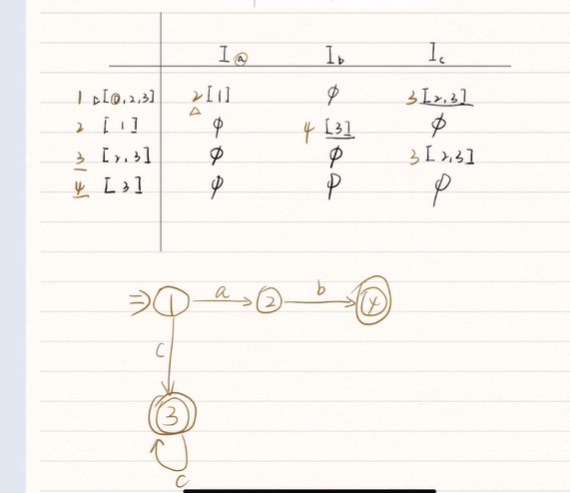 I a I b I c
1 [0,2,3] 2 [1] ϕ 3 [2,3]
2 [1] ϕ 4 [3] ϕ
3 [2,3] ϕ ϕ 3 [2,3]
4 [3] ϕ ϕ ϕ
⇒ 1 a 2 b 4
c
3
c